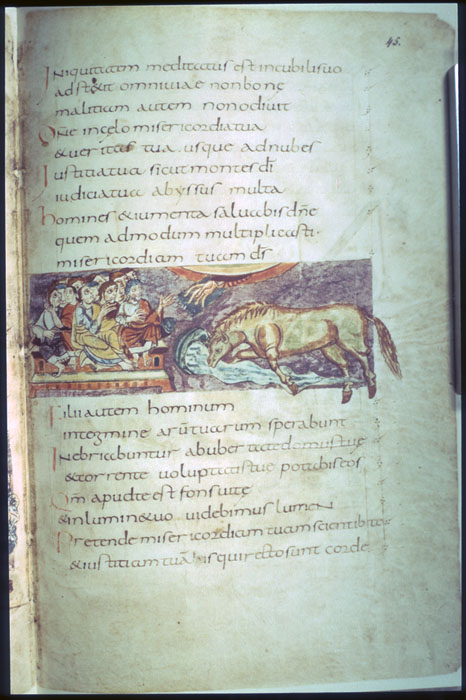 45.
Iniquitatem meditatus est incubilisuo
adst&it omniuiae nonbonę
malitiam autem nonodiuit
Dñe incęlo misericordiatua
&ueritas tua usque adnubes
Iustitiatua sicut montes dī
iudiciatua abyssus multa
homines &iumenta saluabis dñe
quem admodum multiplicasti
misericordiam tuam ds̄
Filii autem hominum
integmine alarū tuarum sperabunt
Inebriabuntur abubertate domustuę
&torrente uoluptatistuę potabis eos
Qm̄ aputte est fons uitę
&inlumine tuo uidebimus lumen
Pretende misericordiam tuam scientibus te
&iustitiam tuā his quirecto sunt corde